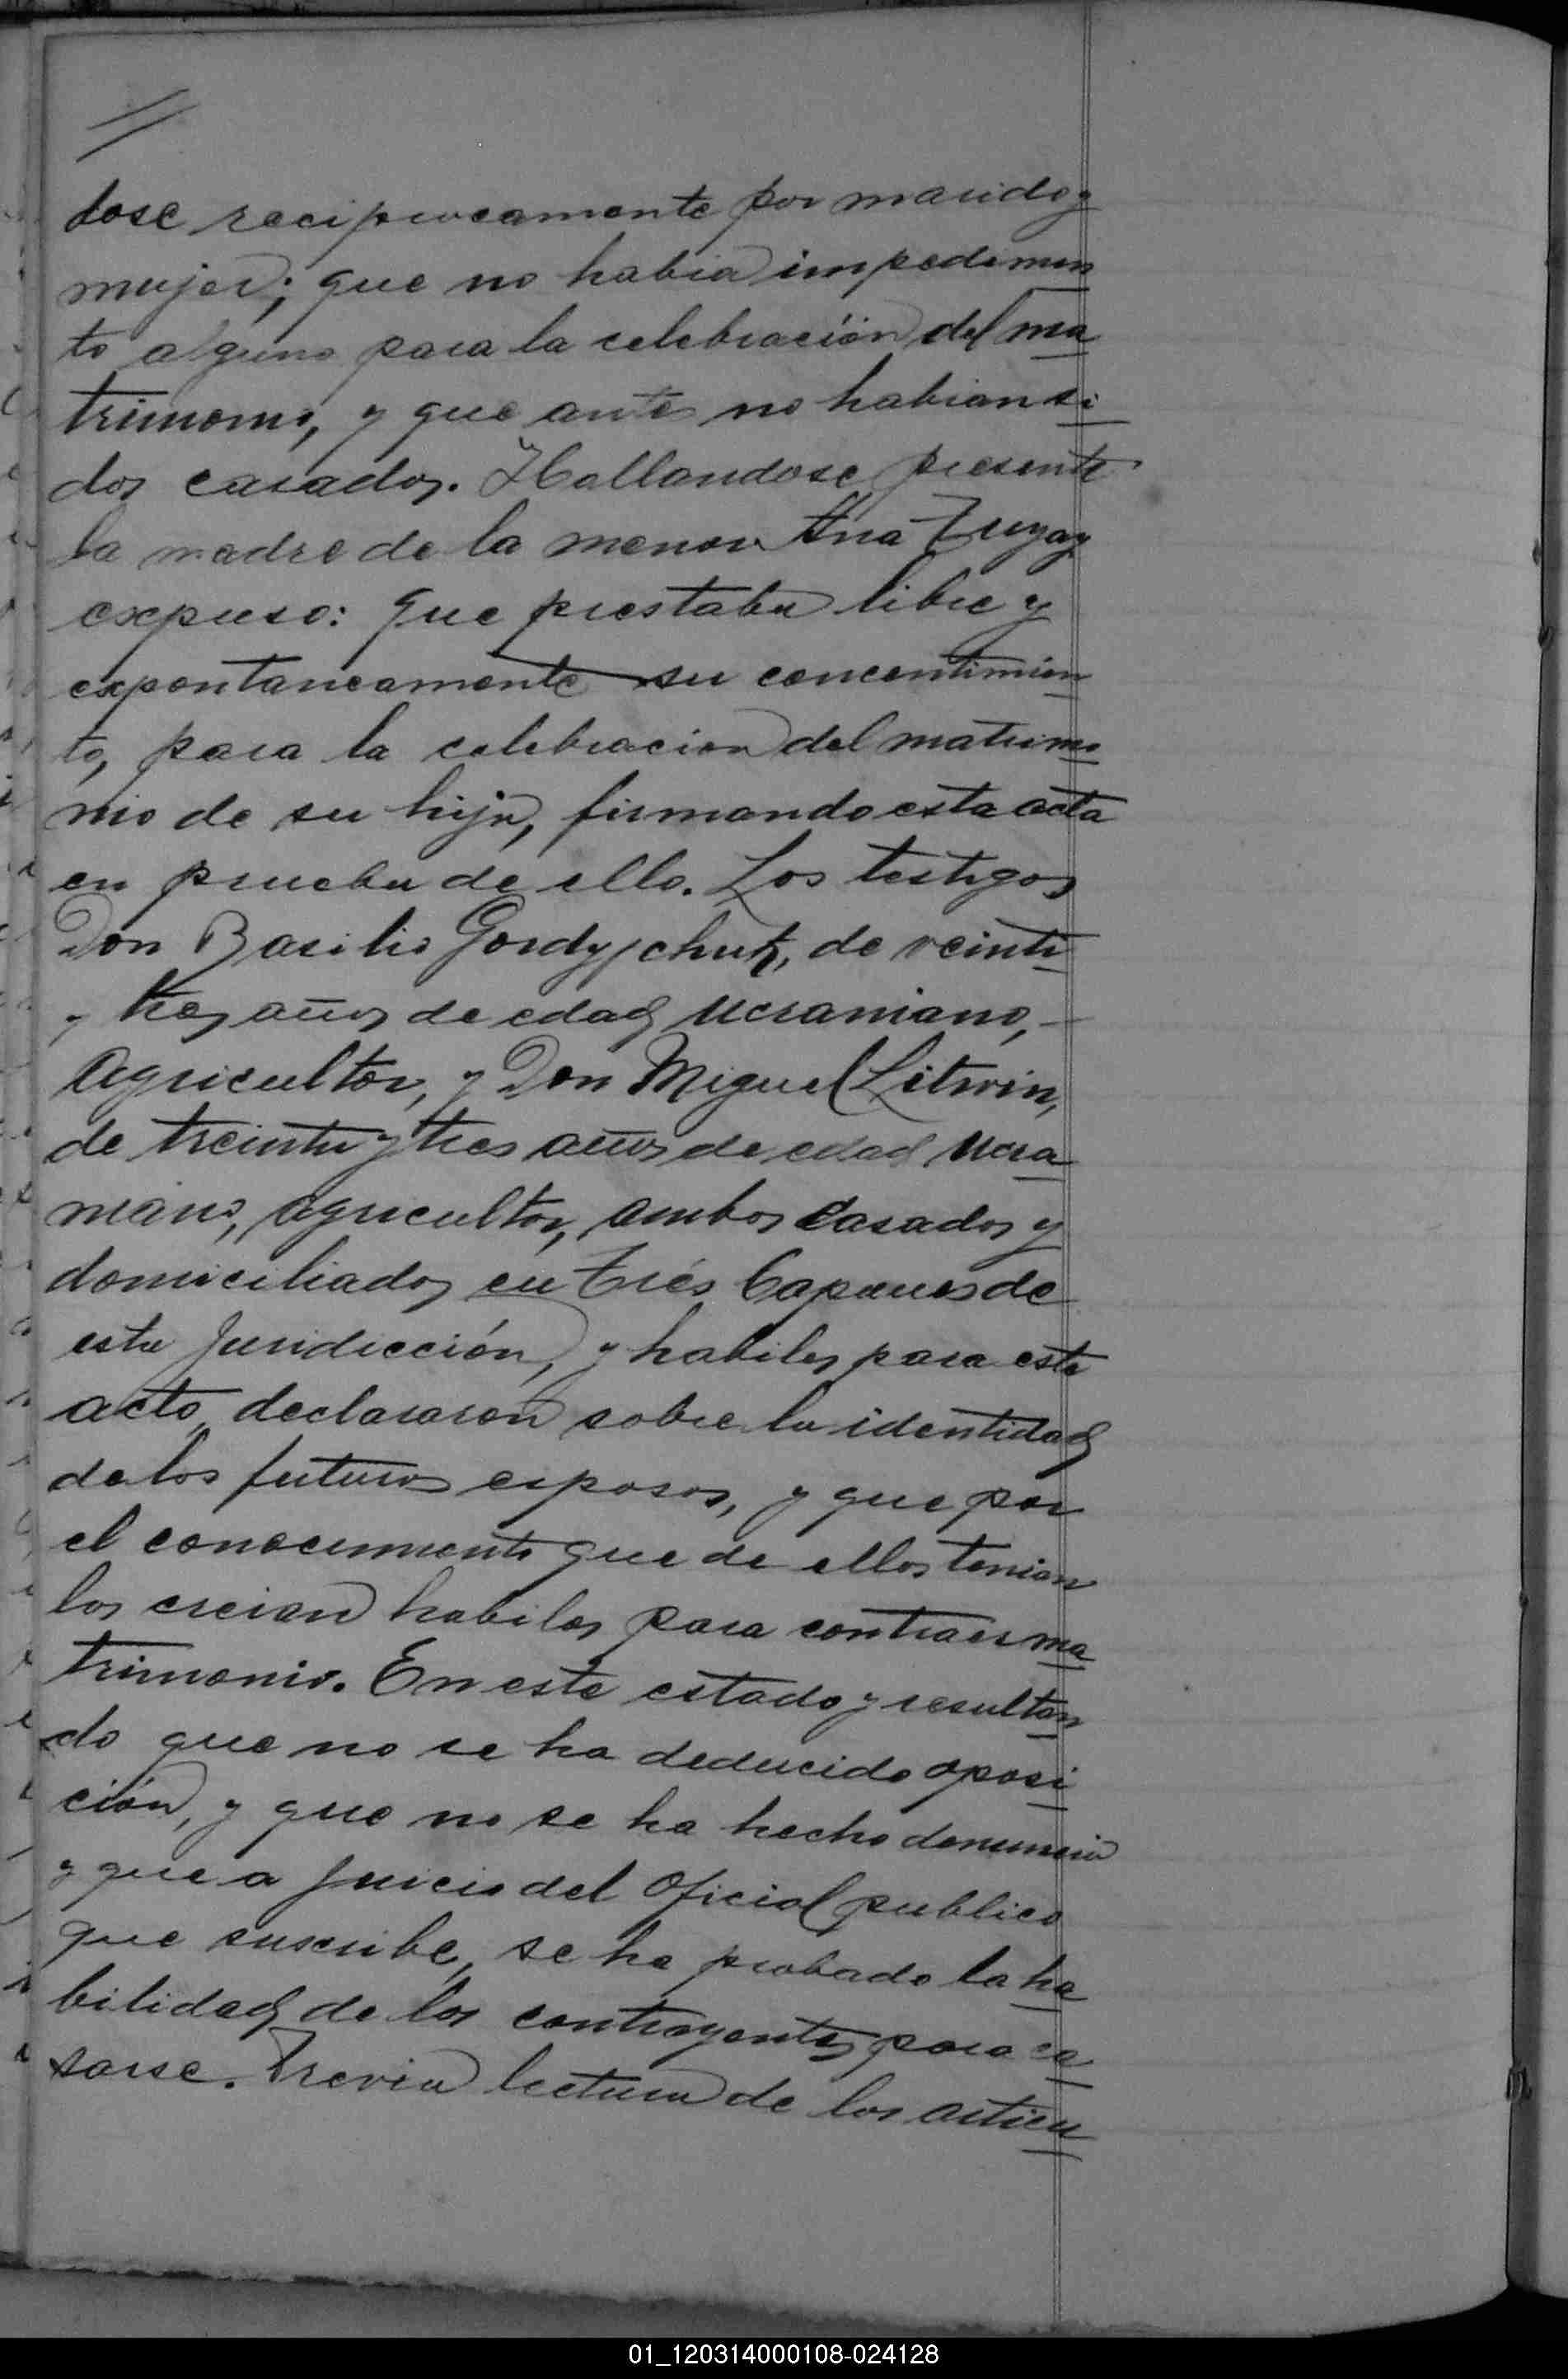 dose reciprocamente por marido y
mujer; que no habia impedimen
to alguno para la celebración del ma
trimonio, y que antes no habian si
dos casados. Hallandose presente
la madre de la menor Ana
expuso: que prestaba libre y
expontaneamente su concentimien
to, para la celebracion del matrimo
nio de su hija, firmando esta acta
en prueba de ello. Los testigos
Don Basilio Gordyjchuk, de veinti
y tres años de edad ucraniano,
agricultor, y Don Miguel Litwin,
de treinta y tres años de edad ucra
niano, agricultor, ambos casados y
domiciliados en Trés Capones de
esta Juridicción, y habiles para este
acto declararon sobre la identidad
de los futuros esposos, y que por
el conocimiento que de ellos tenian
los creian habiles para contraer ma
trimonio. En este estado y resultan
do que no se ha deducido oposi
ción, y que no se ha hecho denuncia
y que a Juicio del Oficial publico
que suscribe, se ha probado la ha
bilidad de los contrayentes para ca
sarse. Previa lectura de los articu
01_120314000108-024128